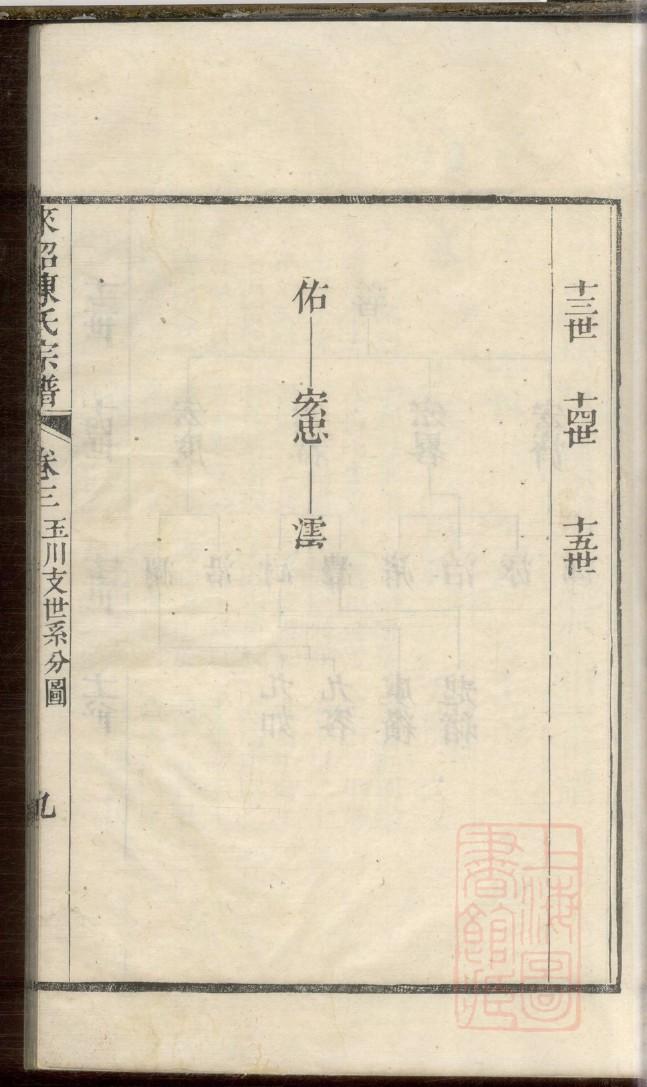 十三世
十四世
十五世
佑
宏思
澐
來紹陳氏宗譜
卷三
玉川支世系分圖
九
上海圖書館藏